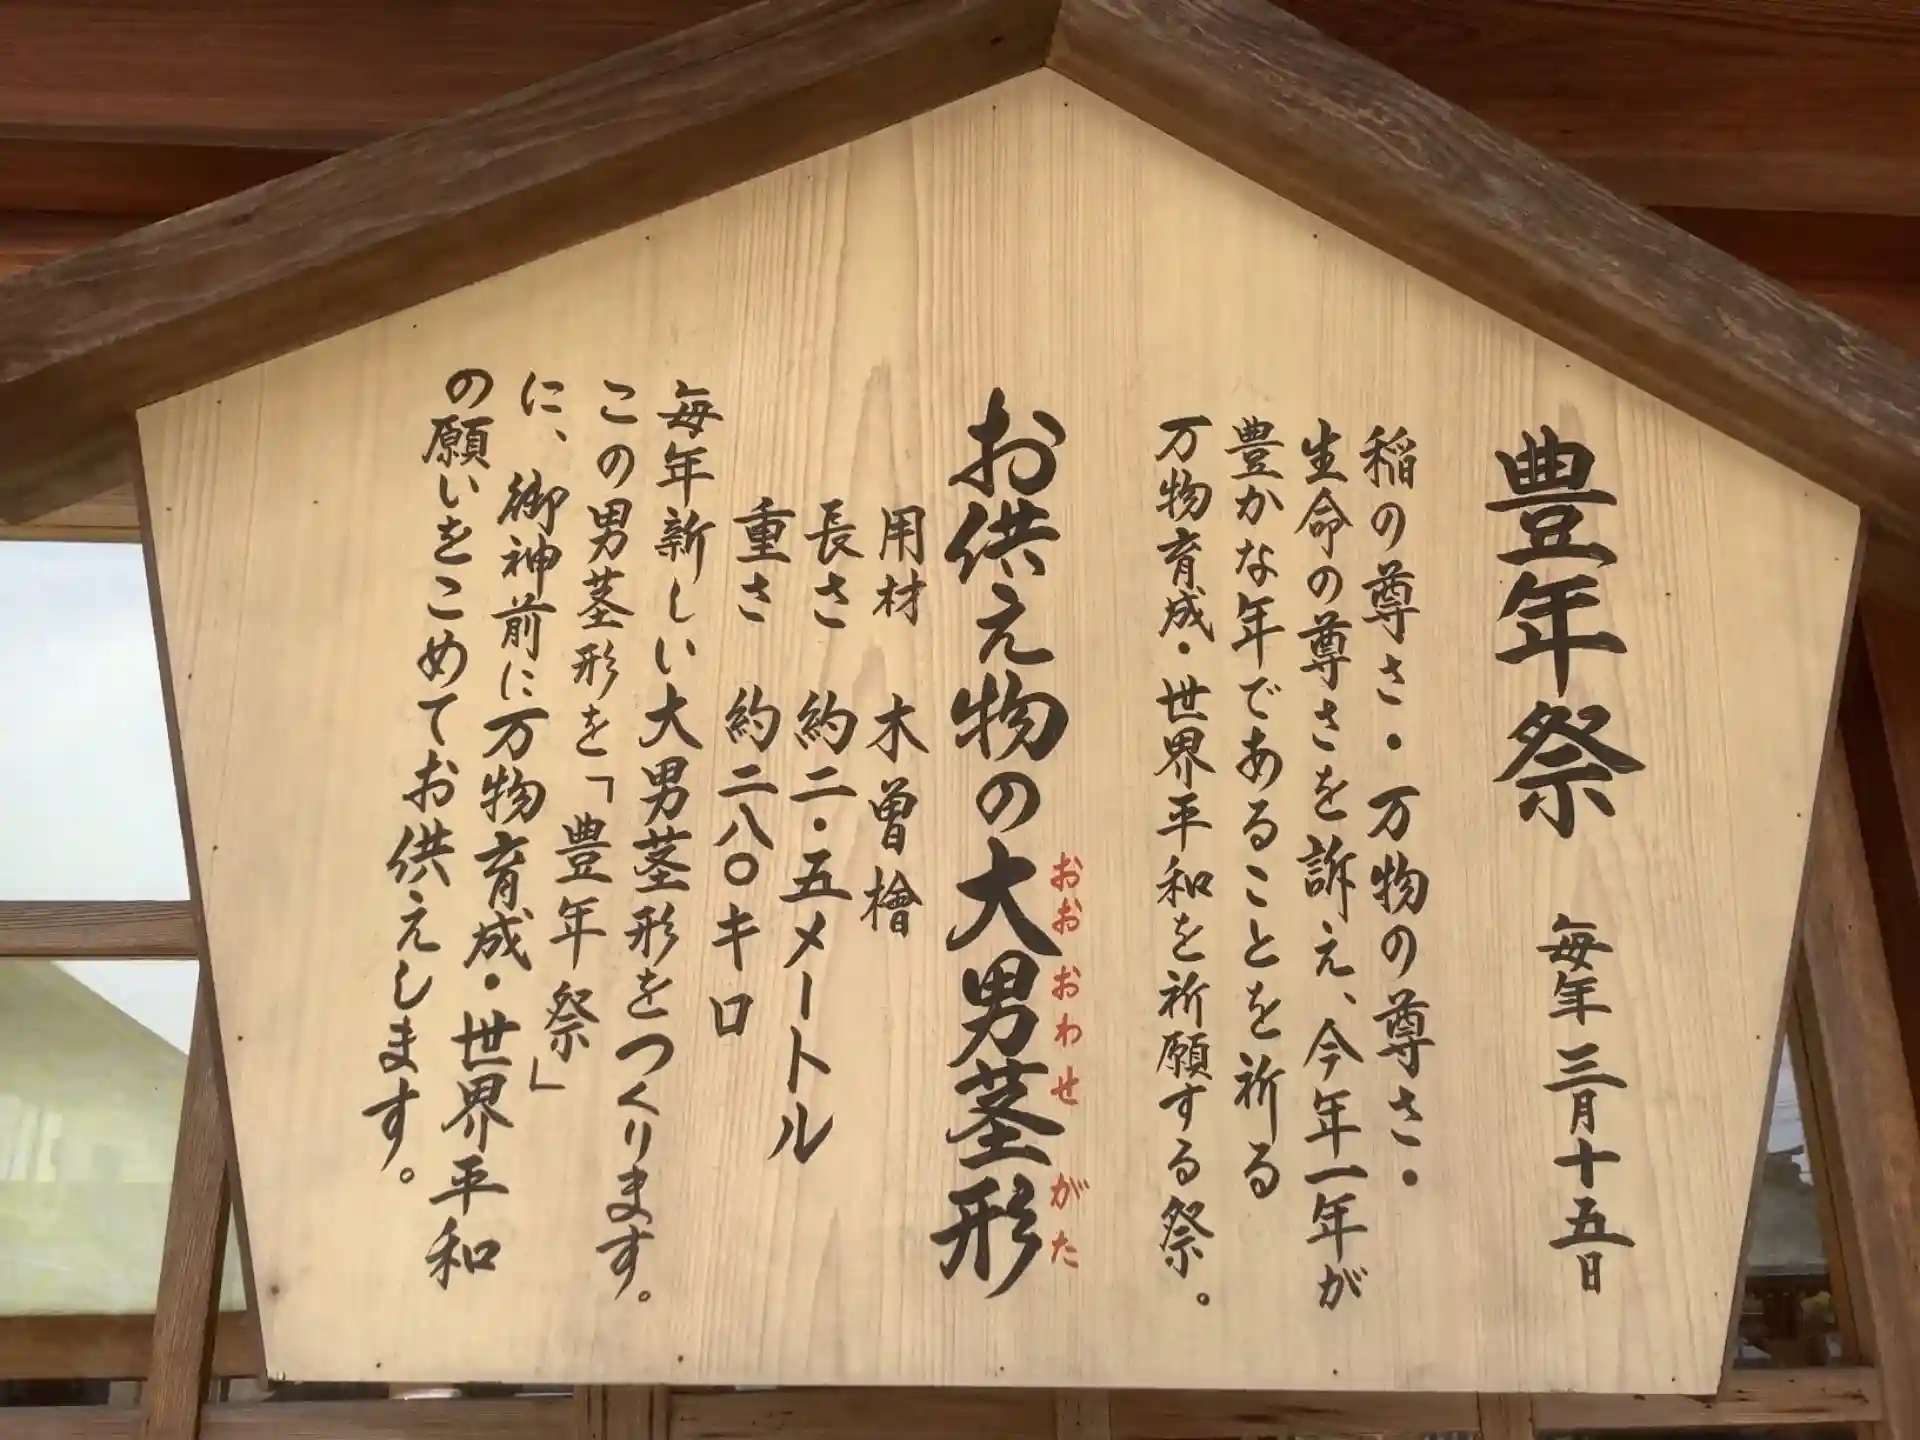 豊年祭　毎年三月十五日
稲の尊さ・万物の尊さ・
生命の尊さを訴え、今年一年が
豊かな年であることを祈る
万物育成・世界平和を祈願する祭。
お供え物の大男茎形
おおおわせがた
用材　木曽檜
長さ　約二・五メートル
重さ　約二八〇キロ
毎年新しい大男茎形をつくります。
この男茎形を「豊年祭」
に、御神前に万物育成・世界平和
の願いをこめてお供えします。